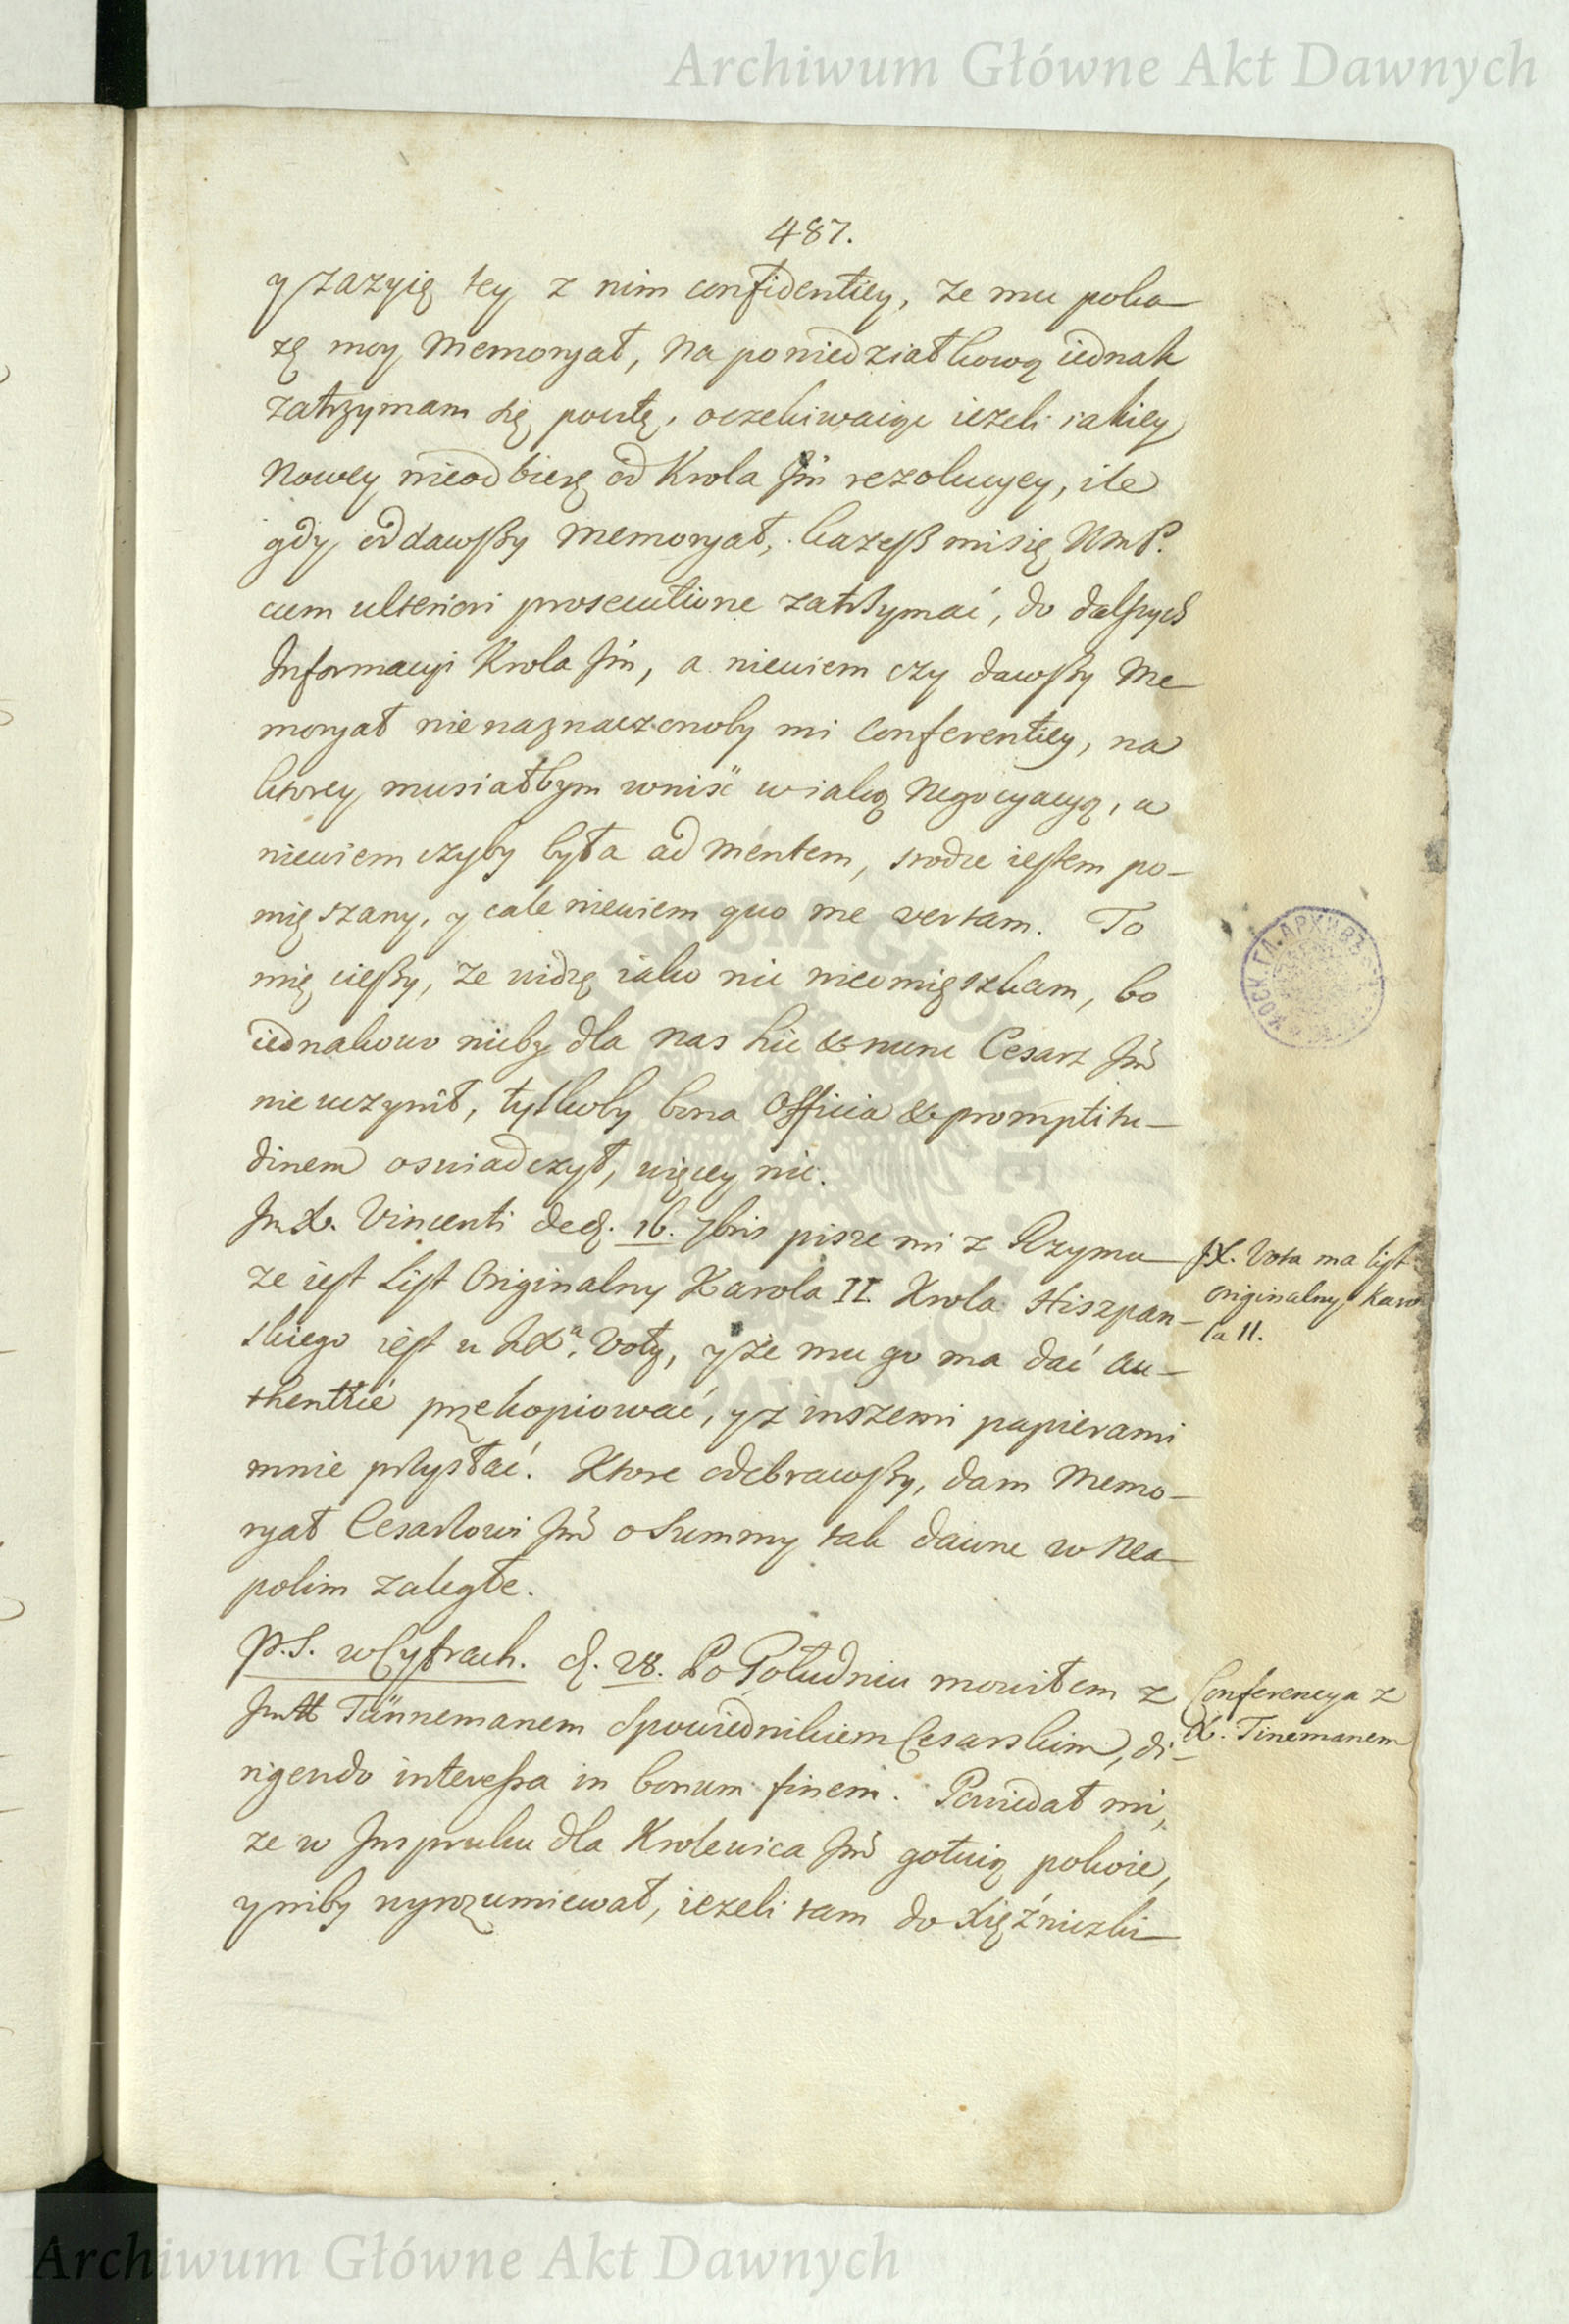 Archiwum Główne Akt Dawnych
487.
y zazyię tey z nim confidentiey, ze mu poka-
zę moy Memoryał, Na poniedziałkową iednak
zatrzymam się pocztę, oczekiwaiąc iezeli iakiey
Nowey nieodbierę od Krola Jm̃ rezolucyey, ile
gdy oddawszy Memoryał, każesz mi się WmP.
cum ulteriori prosecutione zatrzymać, do dalszych
Informacyi Krola Jm̃, a niewiem czy dawszy Me-
moryał nie naznaczonoby mi Conferentiey, na
ktorey musiałbym wniść w iaką Negocyacyą, a
niewiem czyby była ad mentem, srodze iestem po-
mięszany, y cale niewiem quo me vertam. To
mię cieszy, ze widzę iako nic nieomięszkam, bo
iednakowo nicby dla nas hic & nunc Cesarz Jm̃
nie uczynił, tylkoby bona Officia & promptitu-
dinem oswiadczył, więcey nic.
Jm X. Vincenti de d. 16. 7bris pisze mi z Rzymu
ze iest List Originalny Karola II. Krola Hiszpan-
skiego iest u JXa. Voty, y że mu go ma dać au-
thentice przekopiować, y z inszemi papierami
mnie przysłać. Ktore odebrawszy, dam Memo-
ryał Cesarzowi Jm̃ o Summy tak dawne w Nea-
polim zaległe.
JX. Vota ma list
Originalny Karo
la II.
P.S. w Cyfrach. d. 28. Po Południu mowiłem z
Jm X Tünnemanem Spowiednikiem Cesarskim, di-
rigendo interessa in bonum finem. Powiedał mi,
ze w Jnspruku dla Krolewica Jm̃ gotuią pokoie,
y niby wyrozumiewał, iezeli tam do Xiężniczki
Conferencya z
X. Tinemanem
МОСК. ГЛ. АРХИВЪ
Archiwum Główne Akt Dawnych